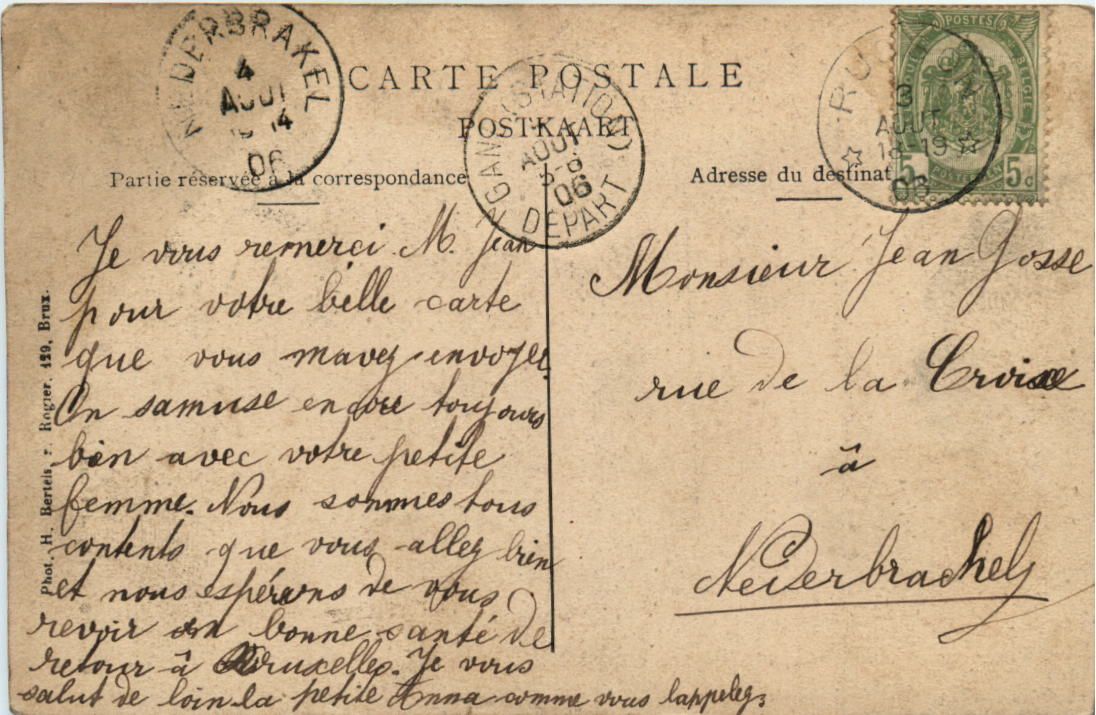 NEDERBRAKEL
4
AOUT
14
06
CARTE POSTALE
POSTKAART
GAND (STATION)
AOUT
06
DEPART
3
AOUT
18-19
06
POSTES
BELGIE
POSTERIJEN
5 5c
Partie réservée à la correspondance
Adresse du destinat
Je vous remerci M. Jean
pour votre belle carte
que vous mavez envoyee.
On samuse encore toujours
bien avec votre petite
femme. Nous sommes tous
contents que vous allez bien
et nous espérons de vous
revoir en bonne santé de
retour à Bruxelles. Je vous
salut de loin la petite Anna comme vous lappelez.
Monsieur Jean Gosse
rue de la Croix
à
Nederbrachel
Phot. H. Bertels, r. Rogier, 129, Brux.